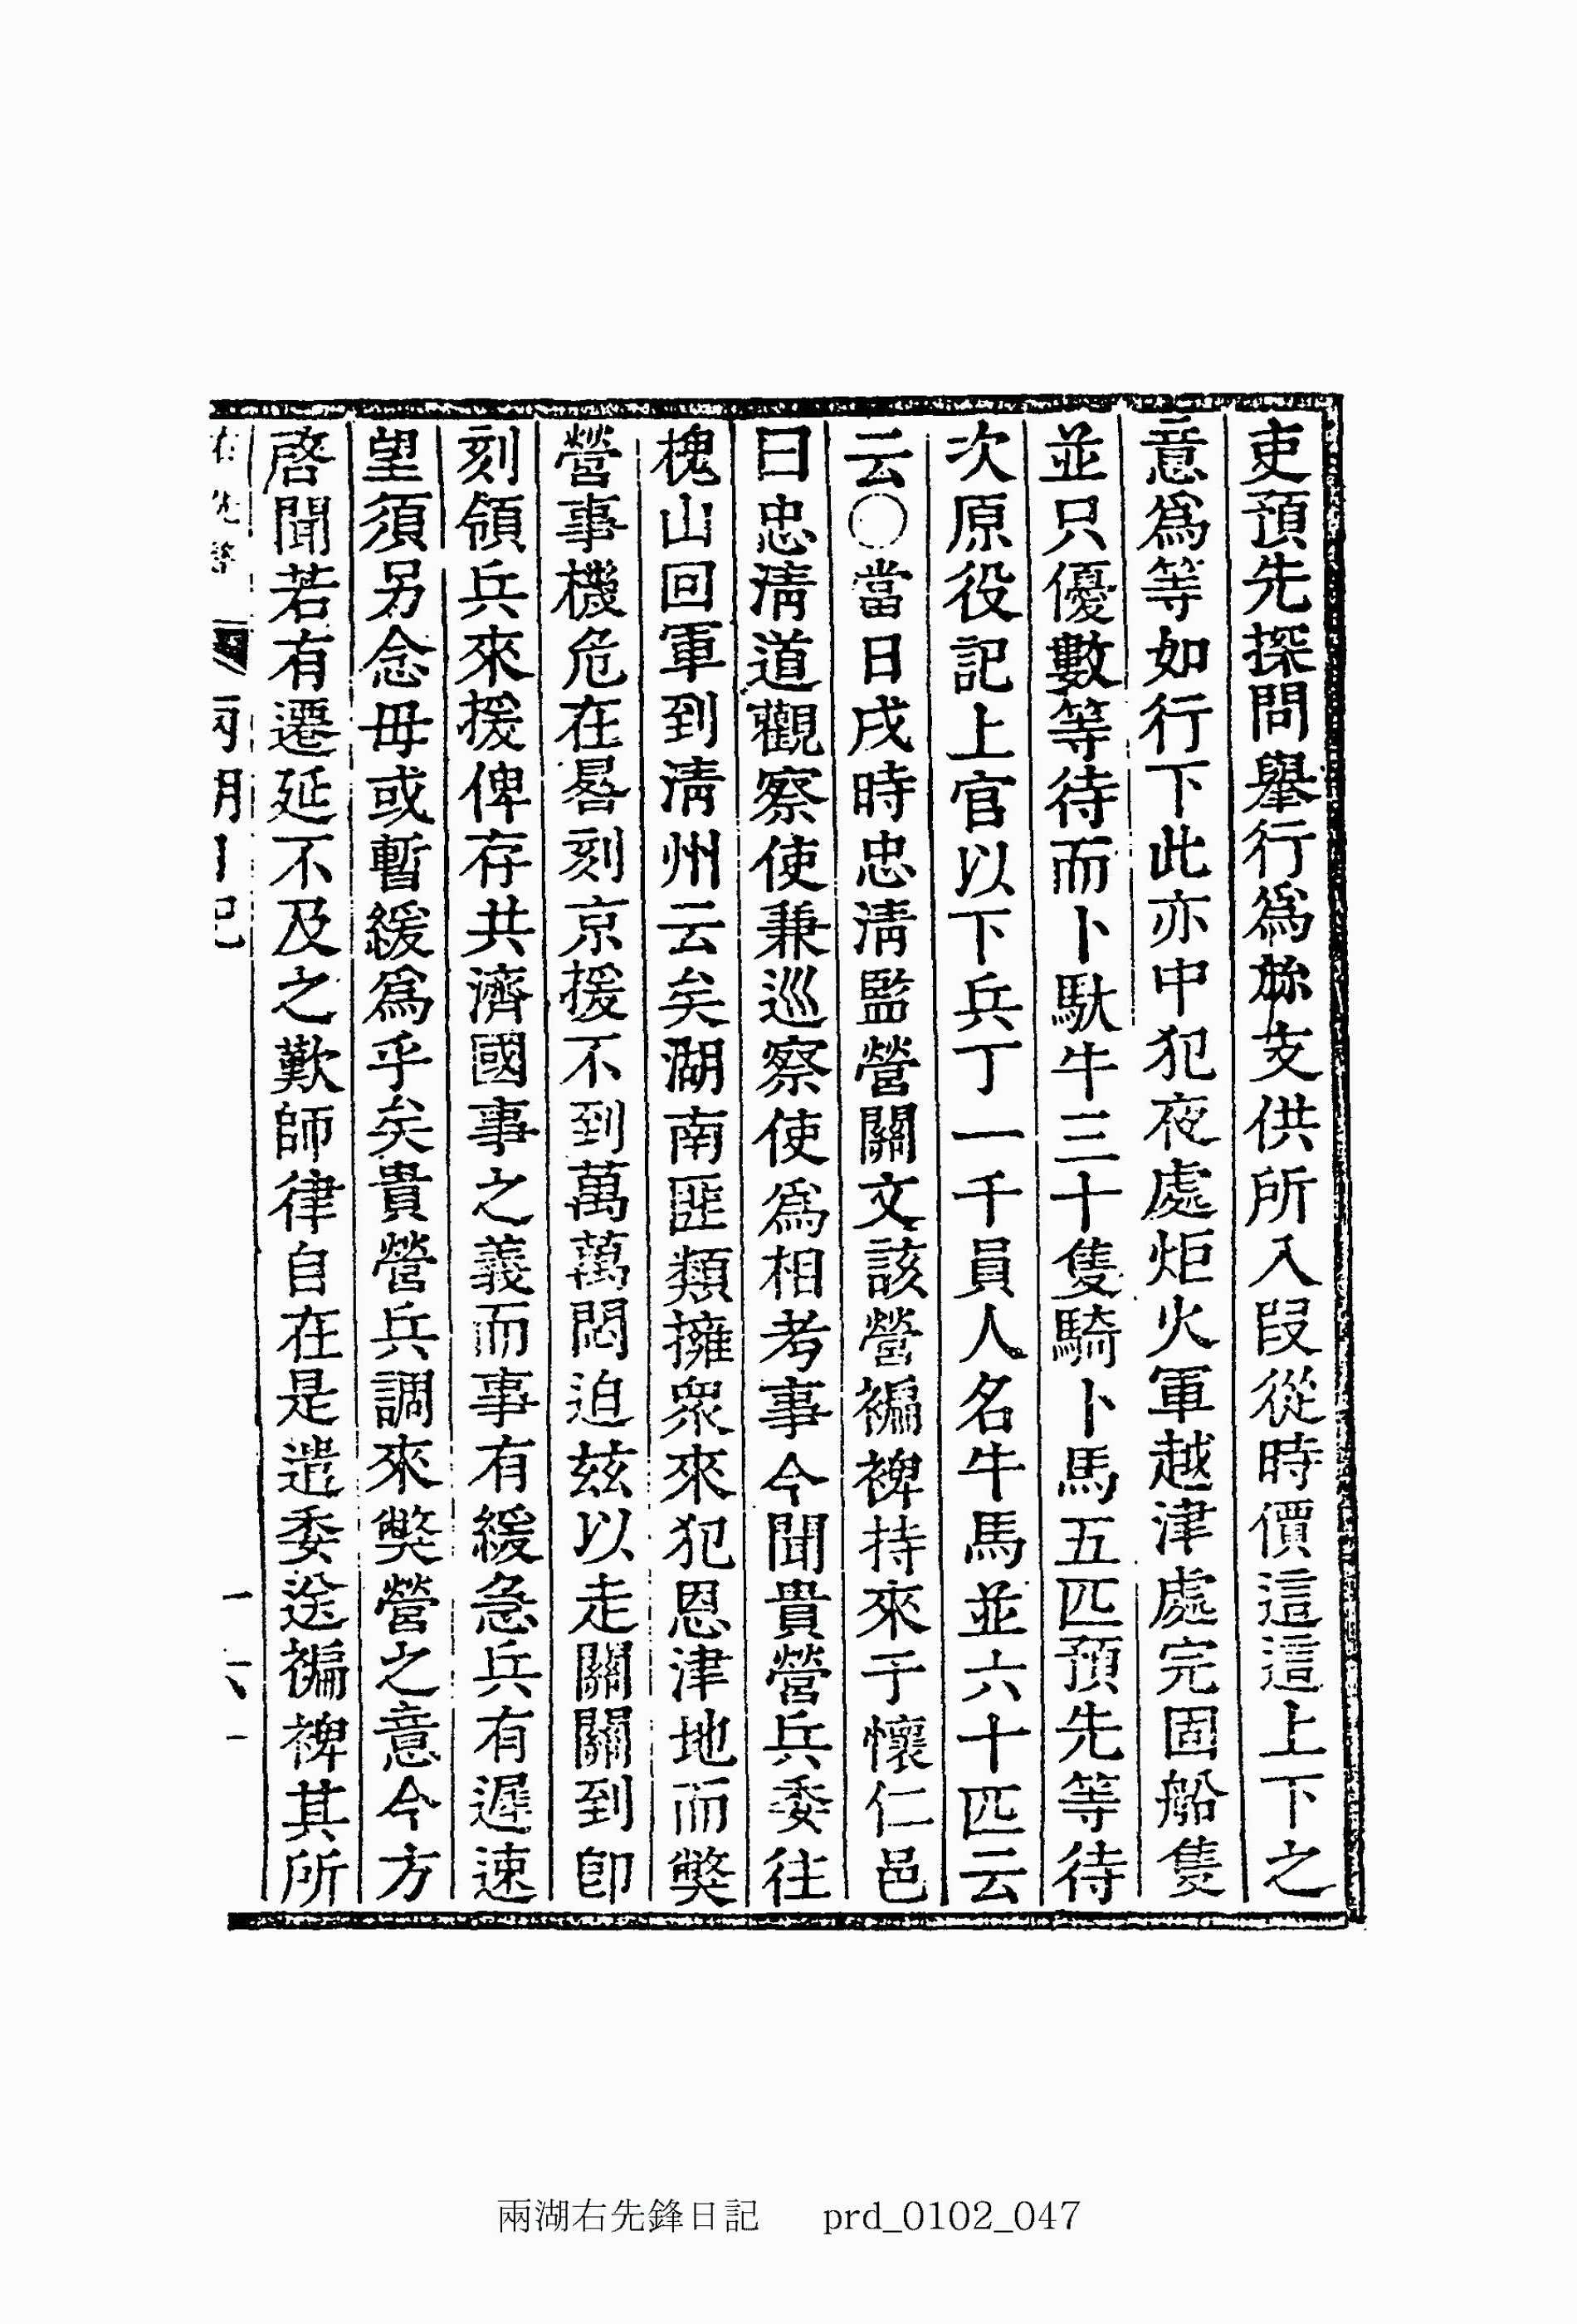 吏預先探問擧行爲旀支供所入段從時價這這上下之
意爲等如行下此亦中犯夜處炬火軍越津處完固船隻
並只優數等待而卜䭾牛三十隻騎卜馬五匹預先等待
次原役記上官以下兵丁一千員人名牛馬並六十匹云
云○當日戌時忠淸監營關文該營褊裨持來于懷仁邑
曰忠淸道觀察使兼巡察使爲相考事今聞貴營兵委往
槐山回軍到淸州云矣湖南匪類擁衆來犯恩津地而獘
營事機危在晷刻京援不到萬萬悶迫玆以走關關到卽
刻領兵來援俾存共濟國事之義而事有緩急兵有遲速
望須另念毋或暫緩爲乎矣貴營兵調來獘營之意今方
啓聞若有遷延不及之歎師律自在是遣委送褊裨其所
兩湖日記
兩湖右先鋒日記 prd_0102_047